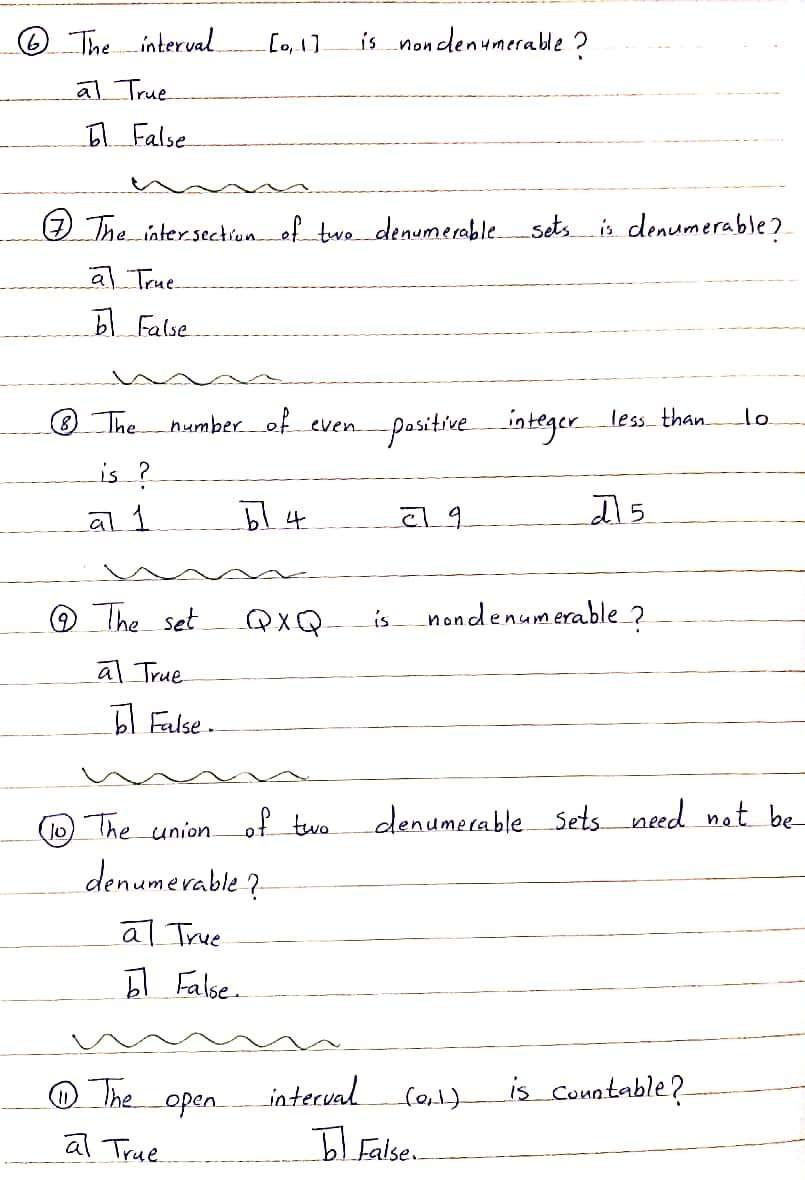 6 The interval [0,1] is nondenumerable?
a) True
b) False
7 The intersection of two denumerable sets is denumerable?
a) True
b) False
8 The number of even positive integer less than 10
is ?
a) 1 b) 4 c) 9 d) 5
9 The set Q×Q is nondenumerable?
a) True
b) False.
10 The union of two denumerable sets need not be
denumerable?
a) True
b) False.
11 The open interval (0,1) is countable?
a) True b) False.